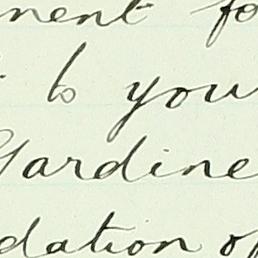 nent fo
to you
Gardine
dation of